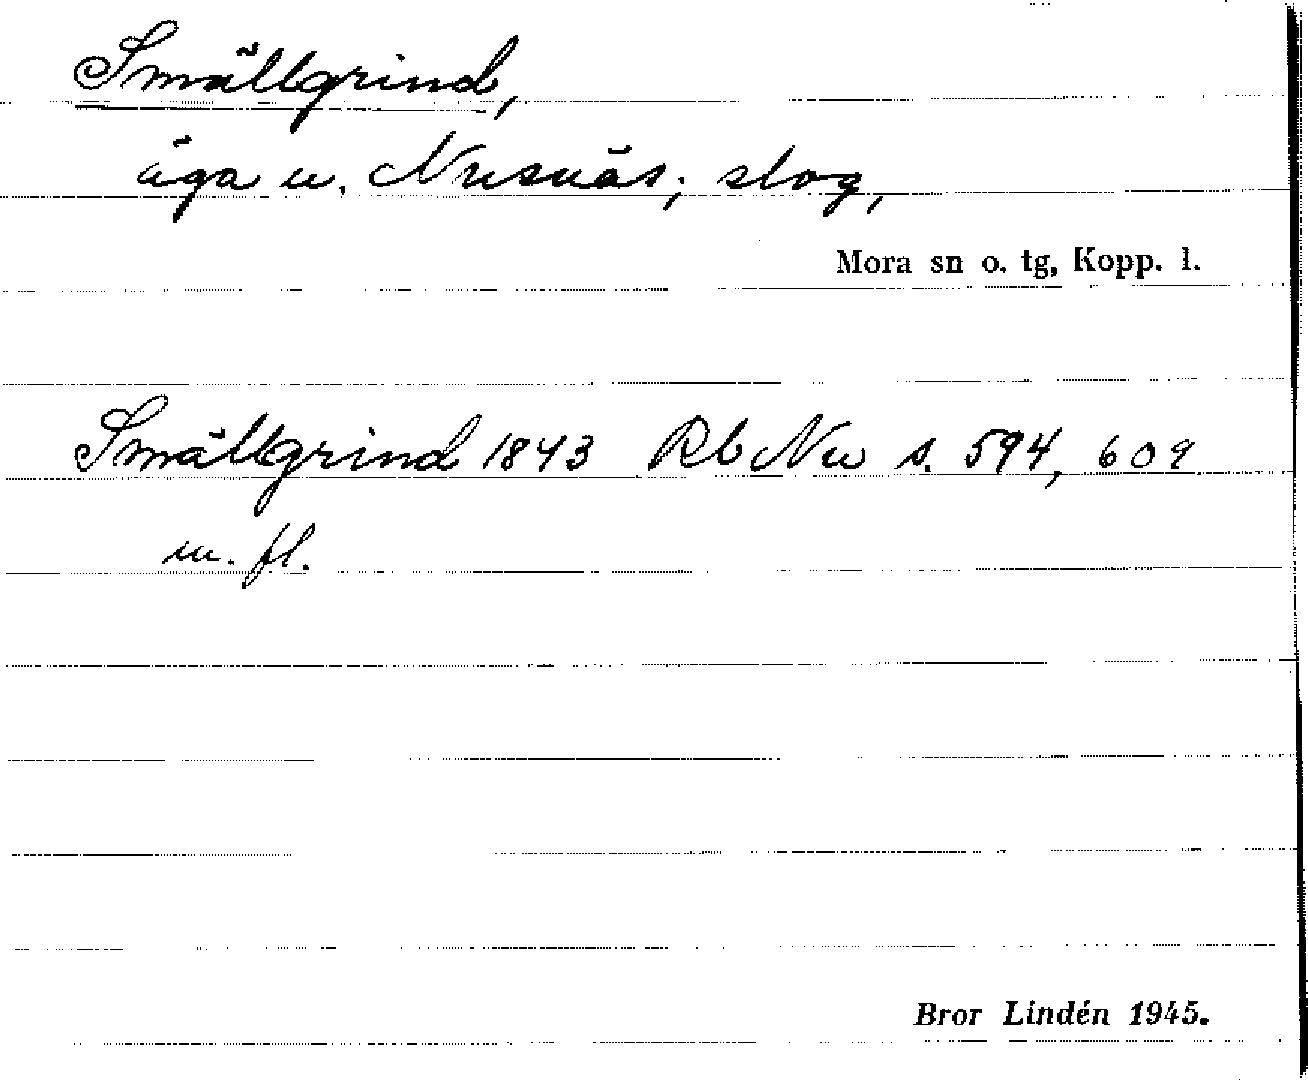 Smällgrind,
äga u. Nusnäs; slog,
Mora sn o. tg, Kopp. l.
Smällgrind 1843 Rb Nu s. 594, 609
m. fl.
Bror Lindén 1945.